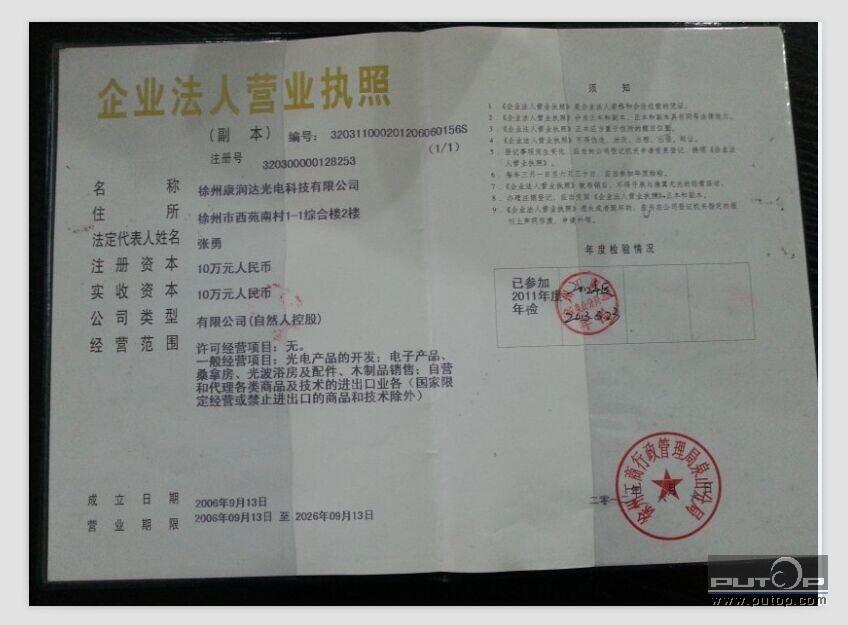 企业法人营业执照
(副 本) 编号：320311000201206060156S
(1/1)
注册号 320300000128253
名 称 徐州康润达光电科技有限公司
住 所 徐州市西苑南村1-1综合楼2楼
法定代表人姓名 张勇
注 册 资 本 10万元人民币
实 收 资 本 10万元人民币
公 司 类 型 有限公司(自然人控股)
经 营 范 围 许可经营项目：无。
一般经营项目：光电产品的开发；电子产品、
桑拿房、光波浴房及配件、木制品销售；自营
和代理各类商品及技术的进出口业各（国家限
定经营或禁止进出口的商品和技术除外）
成 立 日 期 2006年9月13日
营 业 期 限 2006年09月13日 至 2026年09月13日
须 知
1．《企业法人营业执照》是企业法人资格和合法经营的凭证。
2．《企业法人营业执照》分为正本和副本，正本和副本具有同等法律效力。
3．《企业法人营业执照》正本应当置于住所的醒目位置。
4．《企业法人营业执照》不得伪造、涂改、出租、出借、转让。
5．登记事项发生变化，应当向公司登记机关申请变更登记，换领《企业法
人营业执照》。
6．每年三月一日至六月三十日，应当参加年度检验。
7．《企业法人营业执照》被吊销后，不得开展与清算无关的经营活动。
8．办理注销登记，应当交回《企业法人营业执照》正本和副本。
9．《企业法人营业执照》遗失或者毁坏的，应当在公司登记机关指定的报
刊上声明作废，申请补领。
年度检验情况
已参加
2011年度
年检
2013.5.23
徐州工商行政管理局泉山分局
二零一 年 月 日
PUTOP
www.putop.com